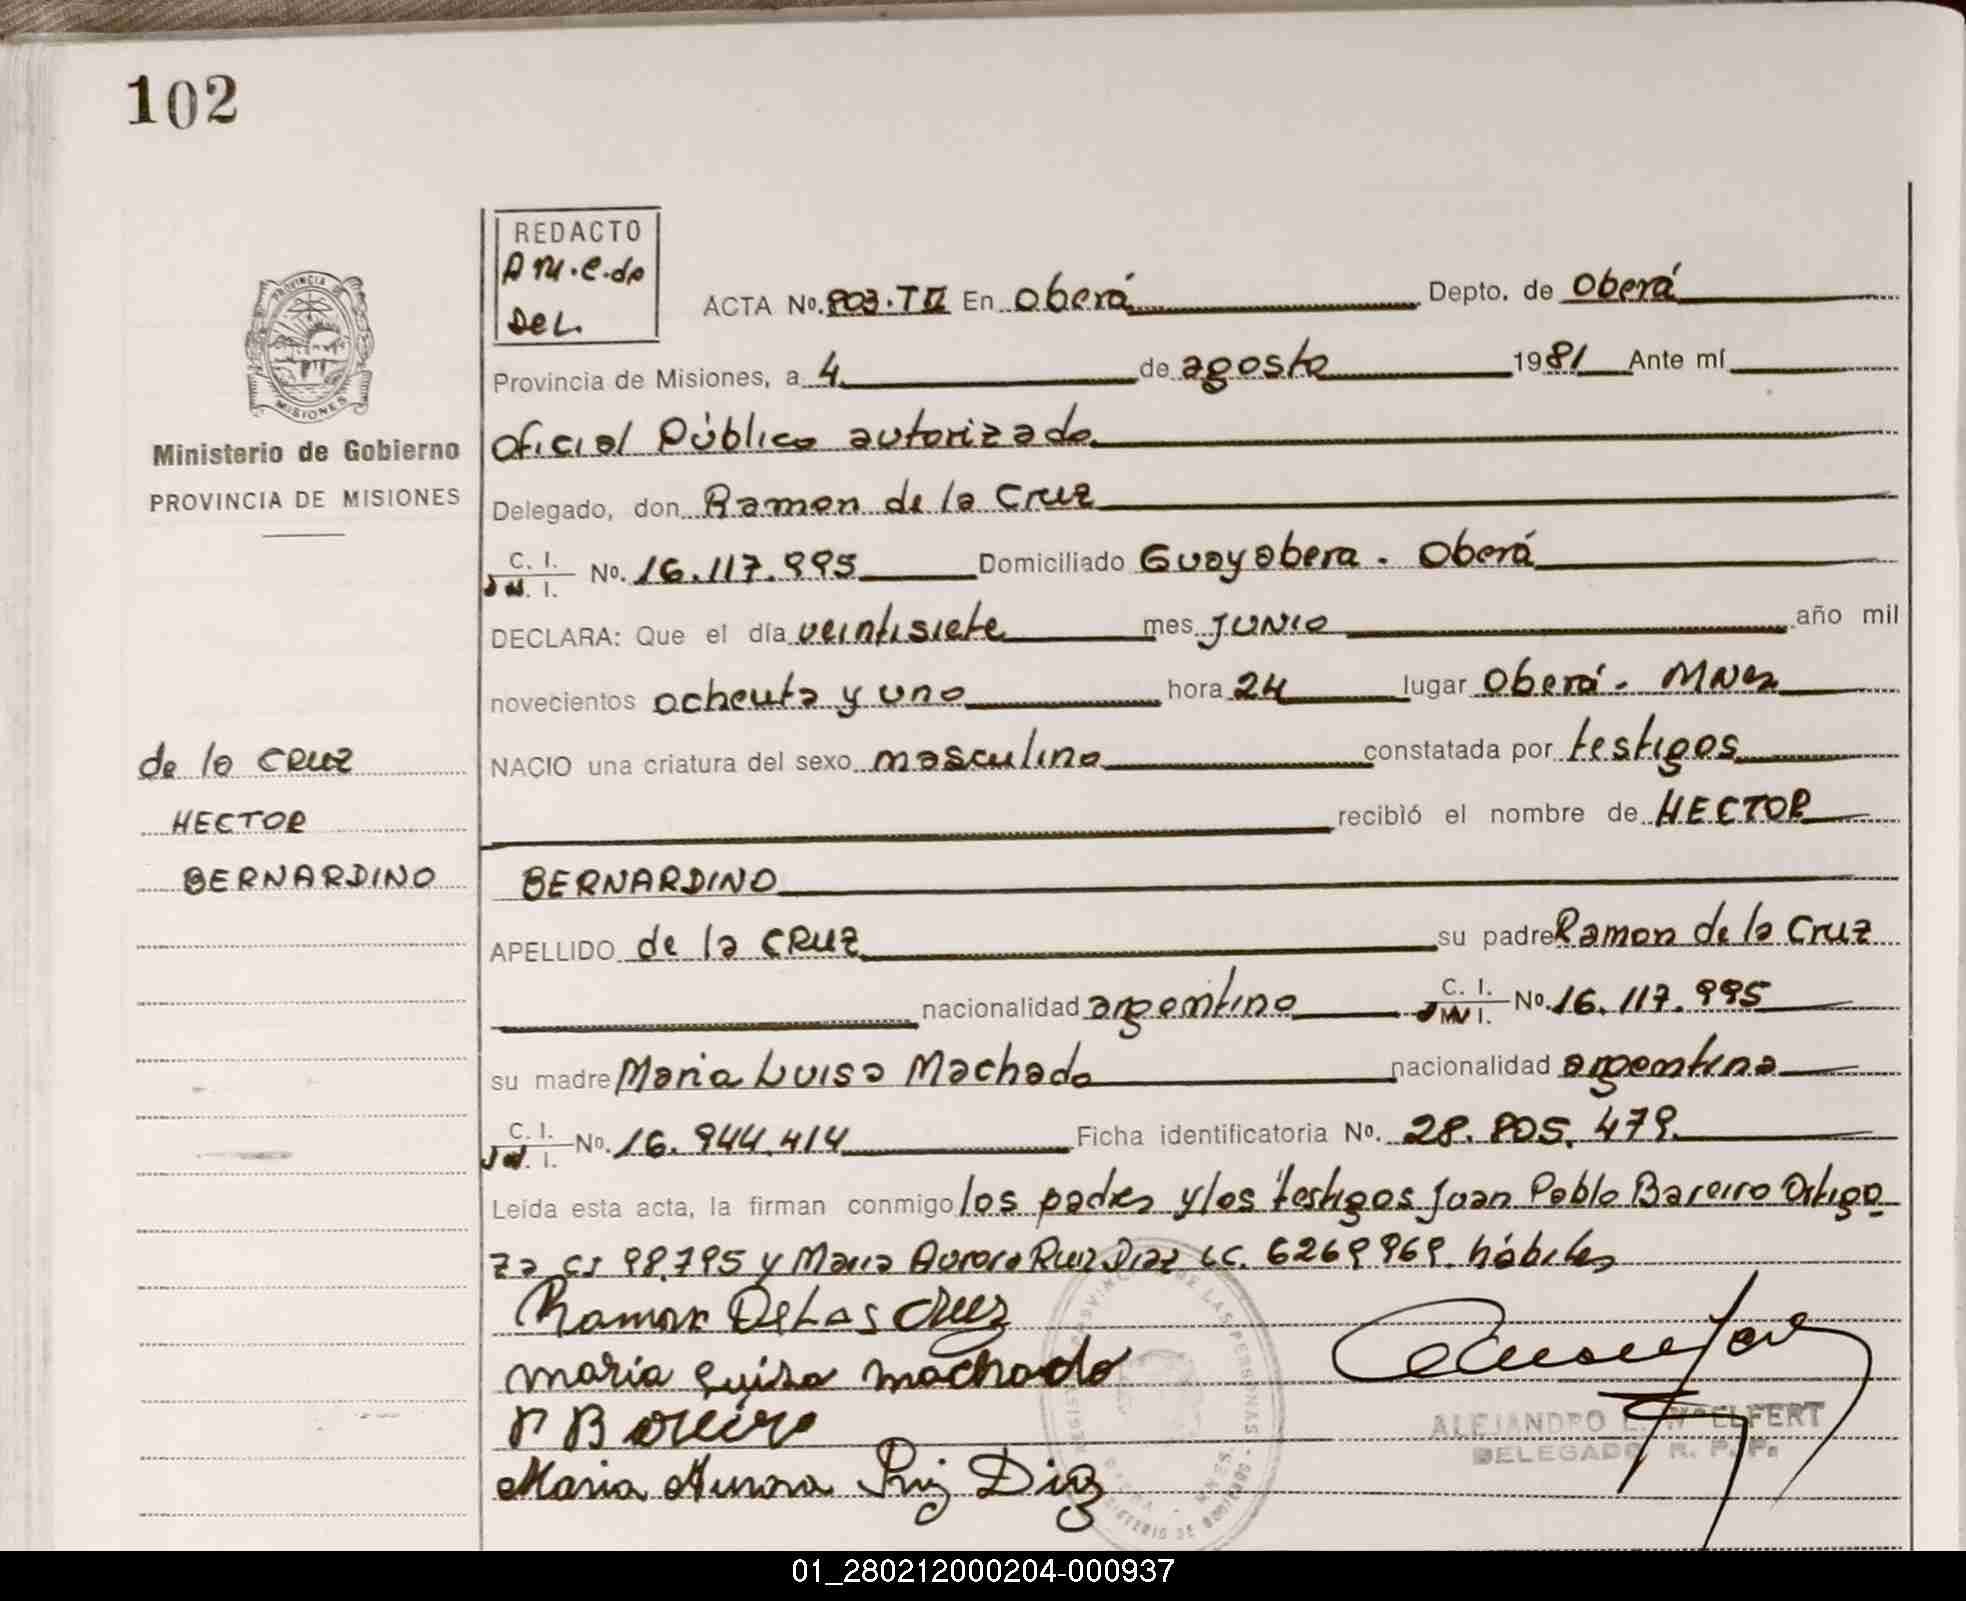 102
REDACTO
A M.C.de
DeL.
ACTA No. 803.T II En Oberá Depto. de Oberá
Provincia de Misiones, a 4 de agosto 1981 Ante mí
Oficial Público autorizado
Delegado, don Ramon de la Cruz
C. I. No. 16.117.995 Domiciliado Guayabera - Oberá
I.
DECLARA: Que el día veintisiete mes JUNIO año mil
novecientos ochenta y uno hora 24 lugar Oberá - MNes
NACIO una criatura del sexo masculino constatada por testigos
recibió el nombre de HECTOR
BERNARDINO
APELLIDO de la CRUZ su padre Ramon de la Cruz
nacionalidad argentino C. I. No. 16.117.995
I.
su madre Maria Luisa Machado nacionalidad argentina
C. I. No. 16.944.414 Ficha identificatoria No. 28.805.479.
I.
Leída esta acta, la firman conmigo los padres y los testigos Juan Pablo Bareiro Ortigo
za CI 98.795 y Maria Aurora Ruiz Diaz LC. 6269969. hábiles
Ramon DeLas Cruz
maria Luisa machado
P Bareiro
Maria Aurora Ruiz Diaz
PROVINCIA DE MISIONES
Ministerio de Gobierno
PROVINCIA DE MISIONES
de la CRUZ
HECTOR
BERNARDINO
REGISTRO PROVINCIAL DE LAS PERSONAS
MINISTERIO DE GOBIERNO
OBERA - MNES.
ALEJANDRO L. WOELFERT
DELEGADO R. P. P.
01_280212000204-000937